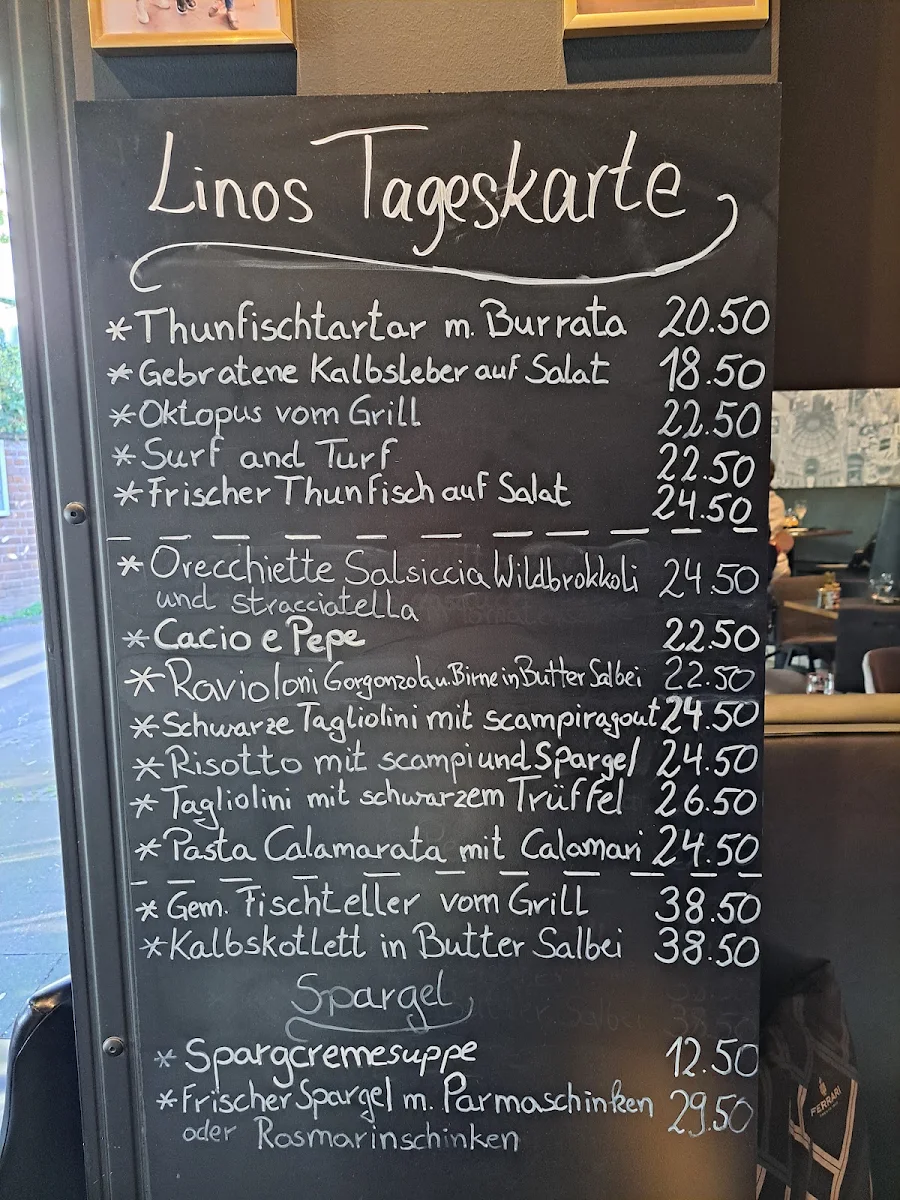 Linos Tageskarte
* Thunfischtartar m. Burrata 20.50
* Gebratene Kalbsleber auf Salat 18.50
* Oktopus vom Grill 22.50
* Surf and Turf 22.50
* Frischer Thunfisch auf Salat 24.50
* Orecchiette Salsiccia Wildbrokkoli 24.50
und stracciatella
* Cacio e Pepe 22.50
* Ravioloni Gorgonzola u. Birne in Butter Salbei 22.50
* Schwarze Tagliolini mit scampiragout 24.50
* Risotto mit scampi und Spargel 24.50
* Tagliolini mit schwarzem Trüffel 26.50
* Pasta Calamarata mit Calamari 24.50
* Gem. Fischteller vom Grill 38.50
* Kalbskotlett in Butter Salbei 38.50
Spargel
* Spargcremesuppe 12.50
* Frischer Spargel m. Parmaschinken 29.50
oder Rosmarinschinken
FERRARI